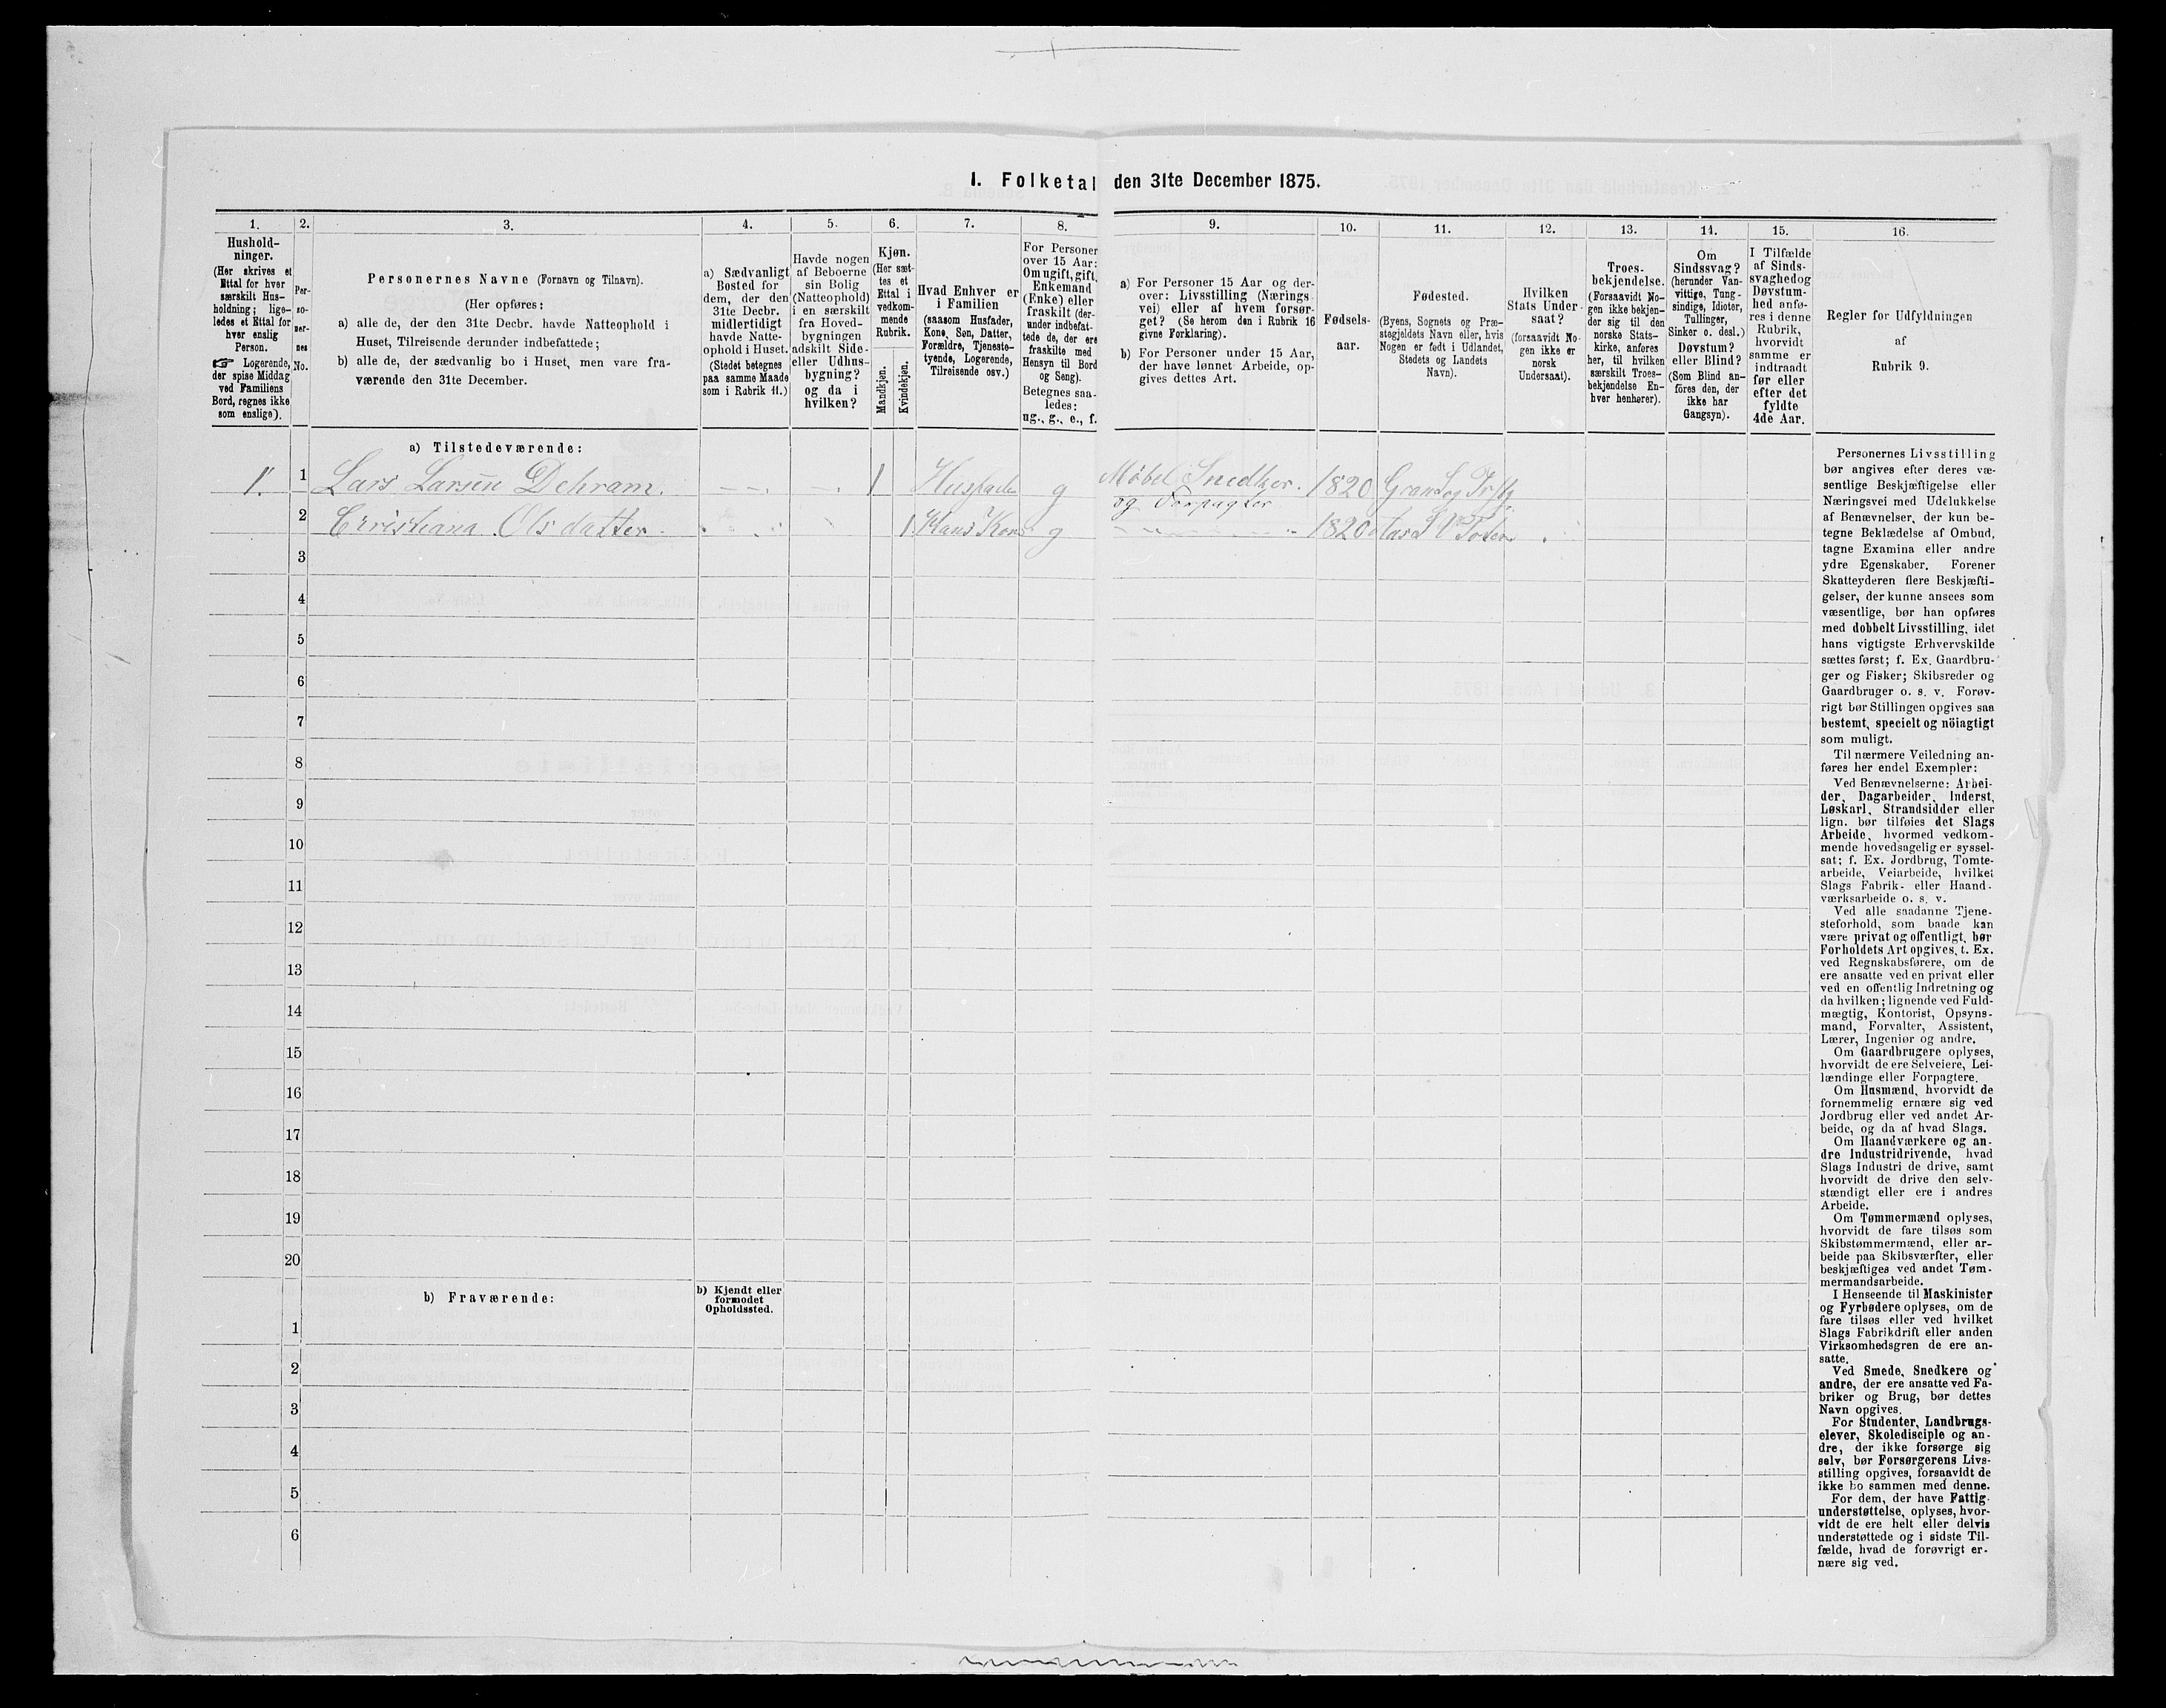 I. Folketal den 31te December 1875.
1.
Hushold-
ninger.
(Her skrives et
Ettal for hver
særskilt Hus-
holdning; lige-
ledes et Ettal for
hver enslig
Person.
☞ Logerende,
der spise Middag
ved Familiens
Bord, regnes ikke
som enslige).
2.
Per-
so-
ner-
nes
No.
3.
Personernes Navne (Fornavn og Tilnavn).
(Her opføres:
a) alle de, der den 31te Decbr. havde Natteophold i
Huset, Tilreisende derunder indbefattede;
b) alle de, der sædvanlig bo i Huset, men vare fra-
værende den 31te December.
4.
a) Sædvanligt
Bosted for
dem, der den
31te Decbr.
midlertidigt
havde Natte-
ophold i Huset.
(Stedet betegnes
paa samme Maade
som i Rubrik 11.)
5.
Havde nogen
af Beboerne
sin Bolig
(Natteophold)
i en særskilt
fra Hoved-
bygningen
adskilt Side-
eller Udhus-
bygning?
og da i
hvilken?
6.
Kjøn.
(Her sæt-
tes et
Ettal i
vedkom-
mende
Rubrik.
Mandkjøn.
Kvindekjøn.
7.
Hvad Enhver er
i Familien
(saasom Husfader,
Kone, Søn, Datter,
Forældre, Tjeneste-
tyende, Logerende,
Tilreisende osv.)
8.
For Personer
over 15 Aar:
Om ugift, gift,
Enkemand
(Enke) eller
fraskilt (der-
under indbefat-
tede de, der ere
fraskilte med
Hensyn til Bord
og Seng).
Betegnes saa-
ledes:
ug., g., e., f.
9.
a) For Personer 15 Aar og der-
over: Livsstilling (Nærings
vei) eller af hvem forsør-
get? (Se herom den i Rubrik 16
givne Forklaring).
b) For Personer under 15 Aar,
der have lønnet Arbeide, op-
gives dettes Art.
10.
Fødsels-
aar.
11.
Fødested.
(Byens, Sognets og Præ-
stegjeldets Navn eller, hvis
Nogen er født i Udlandet,
Stedets og Landets
Navn).
12.
Hvilken
Stats Under-
saat?
(forsaavidt No-
gen ikke er
norsk
Undersaat).
13.
Troes-
bekjendelse.
(Forsaavidt No-
gen ikke bekjen-
der sig til den
norske Stats-
kirke, anføres
her, til hvilken
særskilt Troes-
bekjendelse En-
hver henhører).
14.
Om
Sindssvag?
(herunder Van-
vittige, Tung-
sindige, Idioter,
Tullinger,
Sinker o. desl.)
Døvstum?
eller Blind?
(Som Blind an-
føres den, der
ikke har
Gangsyn).
15.
I Tilfælde
af Sinds-
svaghed og
Døvstum-
hed anfø-
res i denne
Rubrik,
hvorvidt
samme er
indtraadt
før eller
efter det
fyldte
4de Aar.
16.
Regler for Udfyldningen
af
Rubrik 9.
a) Tilstedeværende:
1. 1 Lars Larsen Dehram. 1 Husfader g Møbel Snedker. og Forpagter 1820
2 Cristiana Olsdatter 1 Hans Kone g 1820 V Toten
3
4
5
6
7
8
9
10
11
12
13
14
15
16
17
18
19
20
b) Fraværende:
b) Kjendt eller
formodet
Opholdssted.
1
2
3
4
5
6
Personernes Livsstilling
bør angives efter deres væ-
sentlige Beskjæftigelse eller
Næringsvei med Udelukkelse
af Benævnelser, der kun be-
tegne Beklædelse af Ombud,
tagne Examina eller andre
ydre Egenskaber. Forener
Skatteyderen flere Beskjæfti-
gelser, der kunne ansees som
væsentlige, bør han opføres
med dobbelt Livsstilling, idet
hans vigtigste Erhvervskilde
sættes først; f. Ex. Gaardbru-
ger og Fisker; Skibsreder og
Gaardbruger o. s. v. Forøv-
rigt bør Stillingen opgives saa
bestemt, specielt og nöiagtigt
som muligt.
Til nærmere Veiledning an-
føres her endel Exempler:
Ved Benævnelserne: Arbei-
der, Dagarbeider, Inderst,
Løskarl, Strandsidder eller
lign. bør tilføies det Slags
Arbeide, hvormed vedkom-
mende hovedsagelig er syssel-
sat; f. Ex. Jordbrug, Tomte-
arbeide, Veiarbeide, hvilket
Slags Fabrik- eller Haand-
værksarbeide o. s. v.
Ved alle saadanne Tjene-
steforhold, som baade kan
være privat og offentligt, bør
Forholdets Art opgives, t. Ex.
ved Regnskabsførere, om de
ere ansatte ved en privat eller
ved en offentlig Indretning og
da hvilken; lignende ved Fuld-
mægtig, Kontorist, Opsyns-
mand, Forvalter, Assistent,
Lærer, Ingeniør og andre.
Om Gaardbrugere oplyses,
hvorvidt de ere Selveiere, Lei-
lændinge eller Forpagtere.
Om Husmænd, hvorvidt de
fornemmelig ernære sig ved
Jordbrug eller ved andet Ar-
beide, og da af hvad Slags.
Om Haandværkere og an-
dre Industridrivende, hvad
Slags Industri de drive, samt
hvorvidt de drive den selv-
stændigt eller ere i andres
Arbeide.
Om Tømmermænd oplyses,
hvorvidt de fare tilsøs som
Skibstømmermænd, eller ar-
beide paa Skibsværfter, eller
beskjæftiges ved andet Tøm-
mermandsarbeide.
I Henseende til Maskinister
og Fyrbødere oplyses, om de
fare tilsøs eller ved hvilket
Slags Fabrikdrift eller anden
Virksomhedsgren de ere an-
satte.
Ved Smede, Snedkere og
andre, der ere ansatte ved Fa-
briker og Brug, bør dettes
Navn opgives.
For Studenter, Landbrugs-
elever, Skoledisciple og an-
dre, der ikke forsørge sig
selv, bør Forsørgerens Livs-
stilling opgives, forsaavidt de
ikke bo sammen med denne.
For dem, der have Fattig-
understøttelse, oplyses, hvor-
vidt de ere helt eller delvis
understøttede og i sidste Til-
fælde, hvad de forøvrigt er-
nære sig ved.